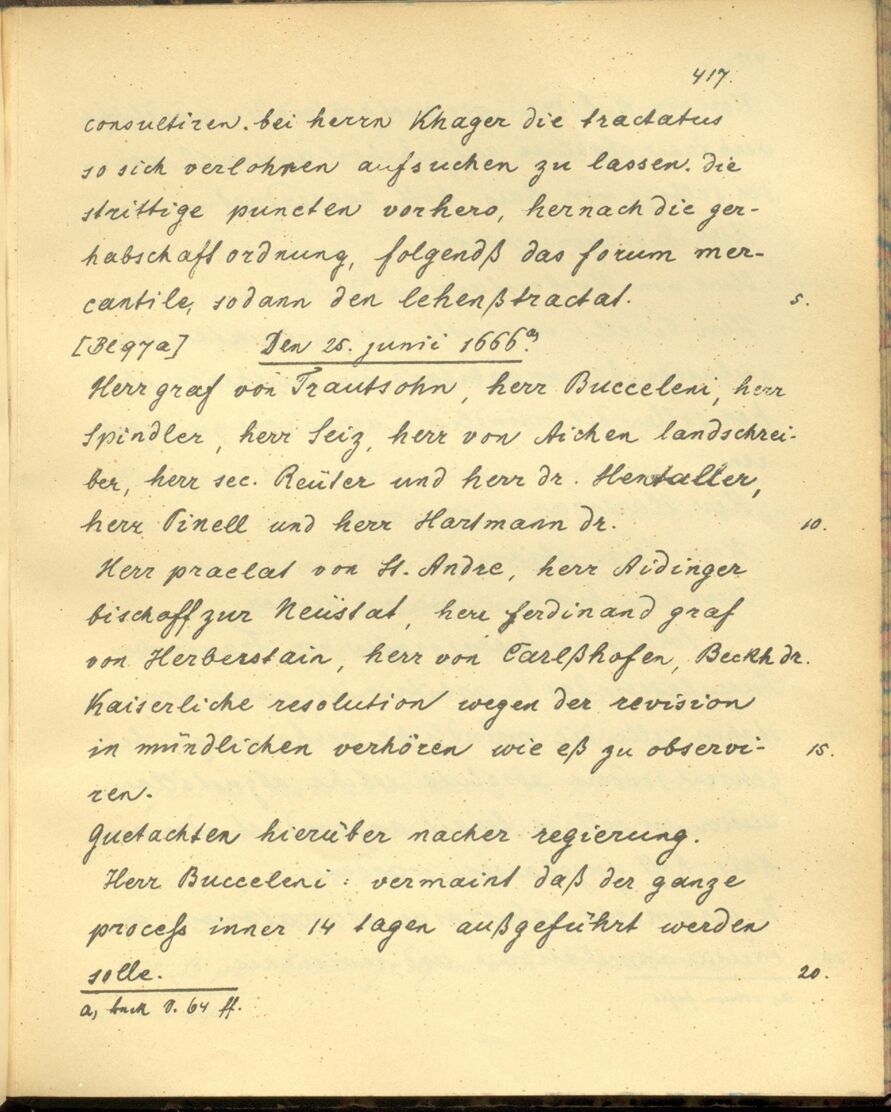 417.
consultiren. bei herrn Khager die tractatus
so sich verlohren aufsuchen zu lassen. die
strittige puncten vorhero, hernach die ger-
habschaft ordnung, folgendß das forum mer-
cantile, sodann den lehenßtractat. 5.
[Bl 97a] Den 25. junii 1666.a)
Herr graf von Trautsohn, herr Bucceleni, herr
Spindler, herr Seiz, herr von Aichen landschrei-
ber, herr sec. Reüter und herr dr. Hentaller,
herr Pinell und herr Hartmann dr. 10.
Herr praelat von St. Andre, herr Aidinger
bischoff zur Neüstat, herr ferdinand graf
von Herberstain, herr von Carlßhofen, Beckh dr.
Kaiserliche resolution wegen der revision
in mündlichen verhören wie eß zu observi- 15.
ren.
Guetachten hierüber nacher regierung.
Herr Bucceleni: vermaint daß der ganze
process inner 14 tagen außgeführt werden
solle. 20.
a, 64 ff.